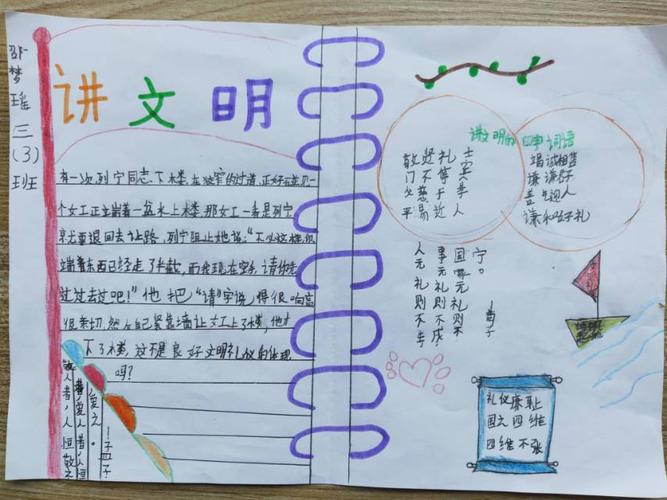 邵梦瑶 三(3)班
讲文明
有一次,列宁同志下楼,在狭窄的过道,正好碰见一
个女工正端着一盆水上楼。那女工一看是列宁,
就要退回去让路,列宁阻止她说:“不必这样,你
端着东西已经走了半截,而我现在空手,请你先
过去吧!”他把“请”字说得很响亮,
很亲切。然后自己紧靠墙,让女工上了楼,他才
下了楼,这不是良好文明礼仪的体现
吗?
敬人者,人恒敬之
爱人者,人恒
爱之。
——孟子
讲文明的四字词语
平易近人
礼
竭诚相待
谦和好礼
人无礼则不生,
事无礼则不成,
国家无礼则不
宁。
——荀子
礼仪廉耻
国之四维
四维不张